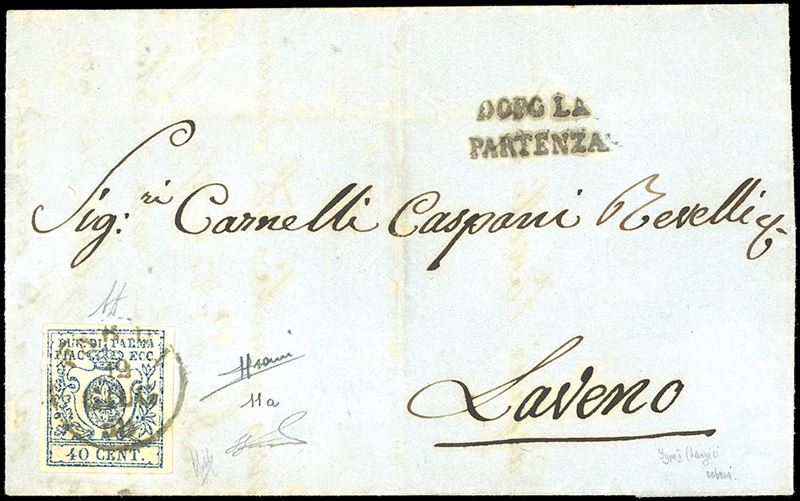 DOPO LA
PARTENZA
Sig:ri Carnelli Caspani Revelli &.
DUC. DI PARMA
PIAC. ECC.
40 CENT.
11a
Laveno